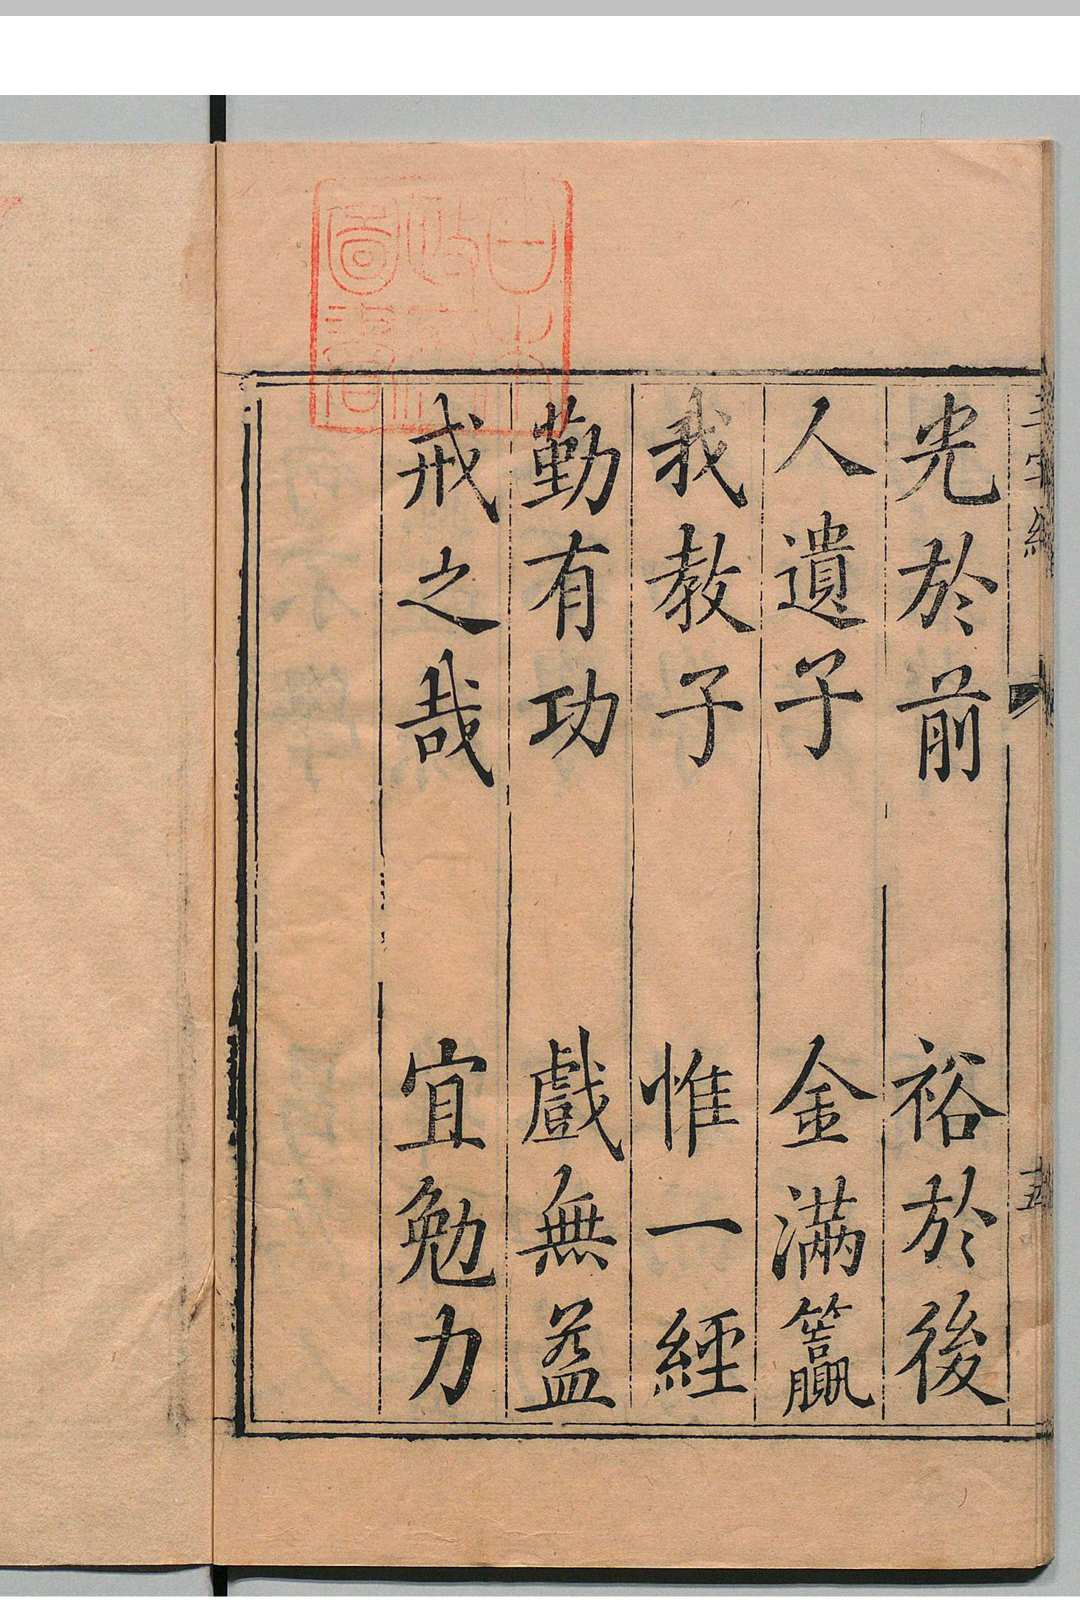 三字經
五
光於前 裕於後
人遺子 金滿籯
我教子 惟一經
勤有功 戲無益
戒之哉 宜勉力